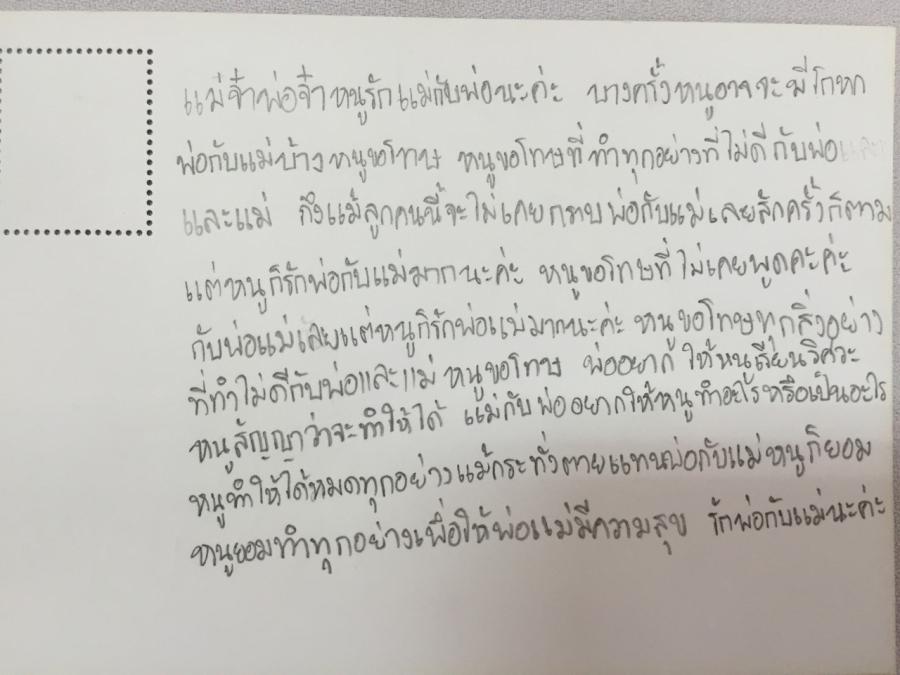 แม่จ๋าพ่อจ๋าหนูรักแม่กับพ่อนะค่ะ บางครั้งหนูอาจจะมีโกหก
พ่อกับแม่บ้างหนูขอโทษ หนูขอโทษที่ทำทุกอย่างที่ไม่ดีกับพ่อและ
และแม่ ถึงแม้ลูกคนนี้จะไม่เคยกราบพ่อกับแม่เลยสักครั้งก็ตาม
แต่หนูก็รักพ่อกับแม่มากนะค่ะ หนูขอโทษที่ไม่เคยพูดคะค่ะ
กับพ่อแม่เลยแต่หนูก็รักพ่อแม่มากนะค่ะ หนูขอโทษทุกสิ่งอย่าง
ที่ทำไม่ดีกับพ่อและแม่ หนูขอโทษ พ่ออยากให้หนูเรียนวิศวะ
หนูสัญญาว่าจะทำให้ได้ แม่กับพ่ออยากให้หนูทำอะไรหรือเป็นอะไร
หนูทำให้ได้หมดทุกอย่างแม้กระทั่งตายแทนพ่อกับแม่หนูก็ยอม
หนูยอมทำทุกอย่างเพื่อให้พ่อแม่มีความสุข รักพ่อกับแม่นะค่ะ